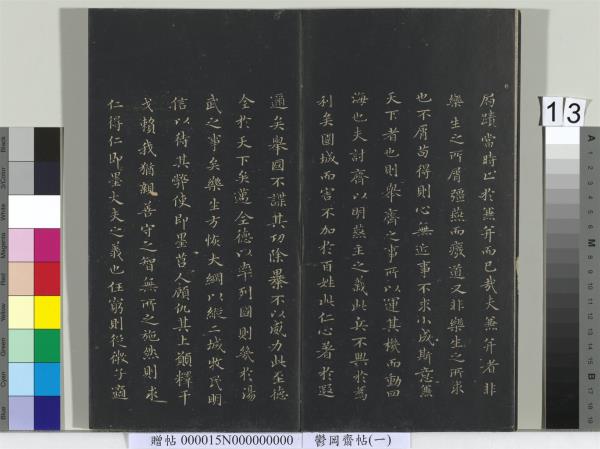 局蹟當時止於兼并而已哉夫兼并者非
樂生之所屑彊燕而廢道又非樂生之所求
也不屑苟得則心無近事不求小成斯意兼
天下者也則舉齊之事所以運其機而動四
海也夫討齊以明燕主之義此兵不興於為
利矣圍城而害不加於百姓此仁心著於遐
邇矣舉國不謀其功除暴不以威力此至德
全於天下矣邁全德以率列國則幾於湯
武之事矣樂生方恢大綱以縱二城牧民明
信以待其弊使即墨莒人顧仇其上願釋干
戈賴我猶親善守之智無所之施然則求
仁得仁即墨大夫之義也任窮則從微子適
13
贈帖 000015N000000000
鬱岡齋帖(一)
Black
3/Color
White
Magenta
Red
Yellow
Green
Cyan
Blue
A
M
B